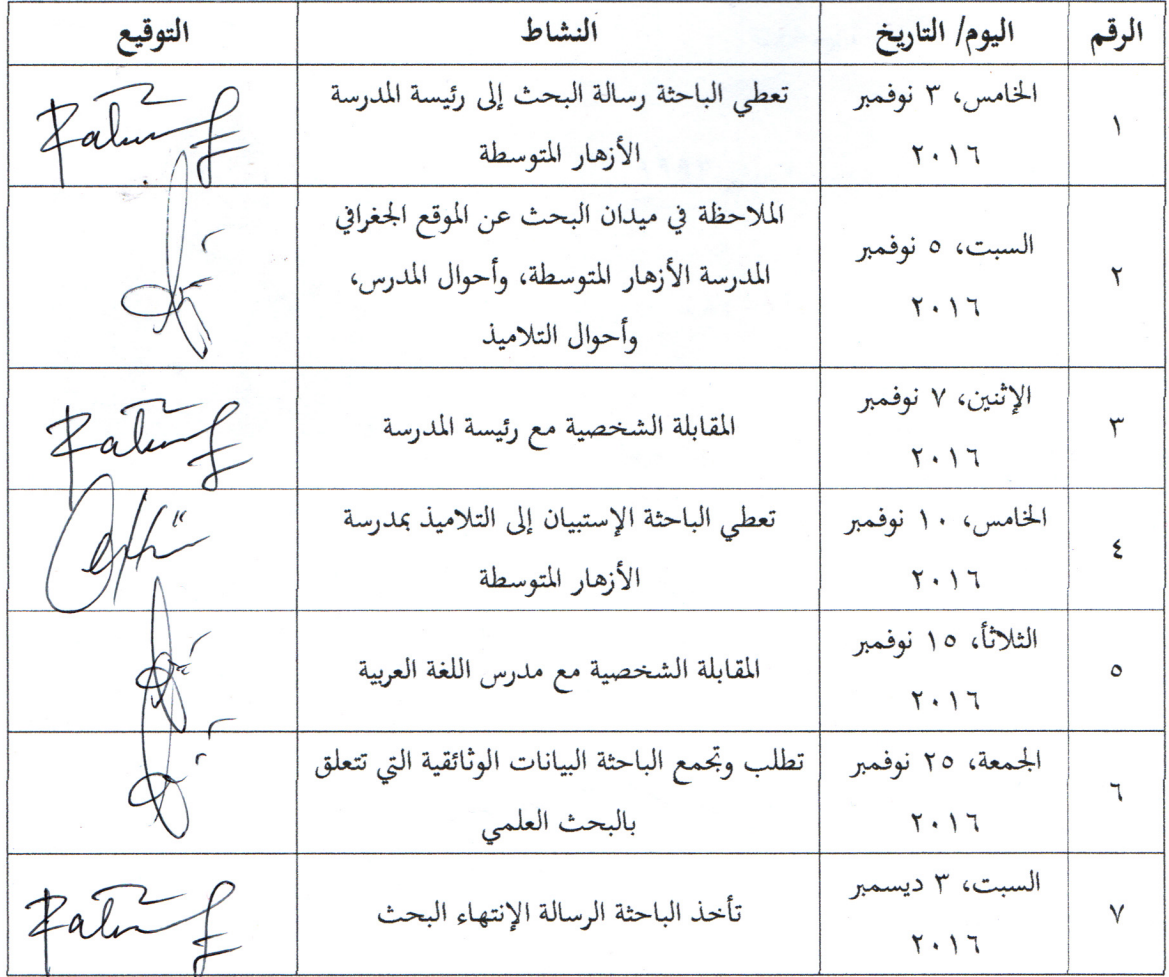 الرقم اليوم/ التاريخ النشاط التوقيع
١ الخامس، ٣ نوفمبر ٢٠١٦ تعطي الباحثة رسالة البحث إلى رئيسة المدرسة
الأزهار المتوسطة
٢ السبت، ٥ نوفمبر ٢٠١٦ الملاحظة في ميدان البحث عن الموقع الجغرافي
المدرسة الأزهار المتوسطة، وأحوال المدرس،
وأحوال التلاميذ
٣ الإثنين، ٧ نوفمبر ٢٠١٦ المقابلة الشخصية مع رئيسة المدرسة
٤ الخامس، ١٠ نوفمبر ٢٠١٦ تعطي الباحثة الإستبيان إلى التلاميذ بمدرسة
الأزهار المتوسطة
٥ الثلاثأ، ١٥ نوفمبر ٢٠١٦ المقابلة الشخصية مع مدرس اللغة العربية
٦ الجمعة، ٢٥ نوفمبر ٢٠١٦ تطلب وتجمع الباحثة البيانات الوثائقية التي تتعلق
بالبحث العلمي
٧ السبت، ٣ ديسمبر ٢٠١٦ تأخذ الباحثة الرسالة الإنتهاء البحث